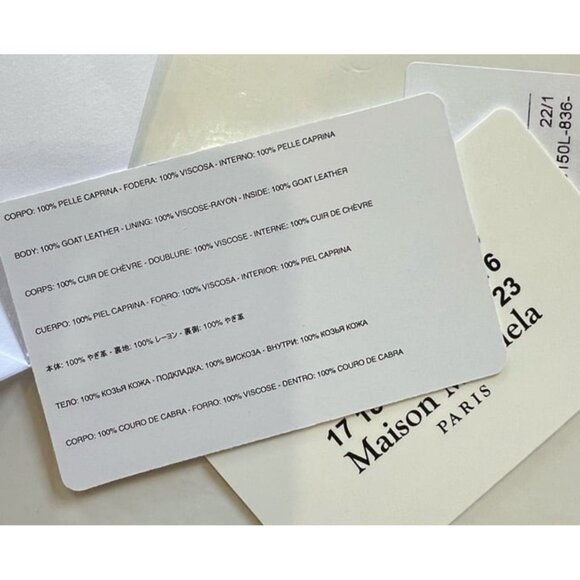 CORPO: 100% PELLE CAPRINA - FODERA: 100% VISCOSA - INTERNO: 100% PELLE CAPRINA
BODY: 100% GOAT LEATHER - LINING: 100% VISCOSE-RAYON - INSIDE: 100% GOAT LEATHER
CORPS: 100% CUIR DE CHÈVRE - DOUBLURE: 100% VISCOSE - INTERNE: 100% CUIR DE CHÈVRE
CUERPO: 100% PIEL CAPRINA - FORRO: 100% VISCOSA - INTERIOR: 100% PIEL CAPRINA
本体: 100% やぎ革 - 裏地: 100% レーヨン - 裏側: 100% やぎ革
ТЕЛО: 100% КОЗЬЯ КОЖА - ПОДКЛАДКА: 100% ВИСКОЗА - ВНУТРИ: 100% КОЗЬЯ КОЖА
CORPO: 100% COURO DE CABRA - FORRO: 100% VISCOSE - DENTRO: 100% COURO DE CABRA
22/1
150L-836-
16
23
17
Maison
PARIS